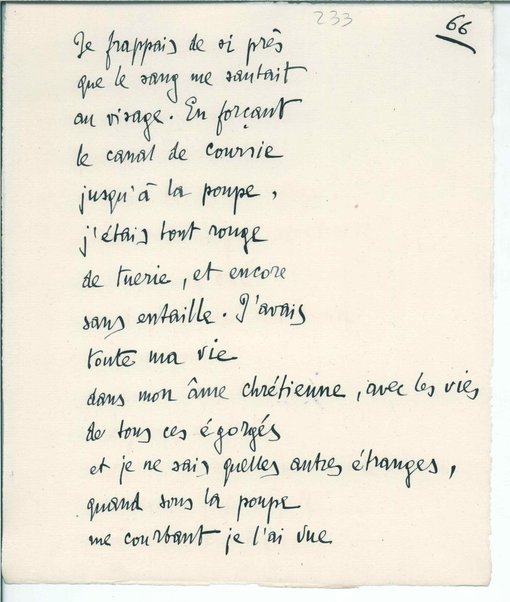 233
66
Je frappais de si près
que le sang me sautait
au visage. En forçant
le canal de coursie
jusqu'à la poupe,
j'étais tout rouge
de tuerie, et encore
sans entaille. J'avais
toute ma vie
dans mon âme chrétienne, avec les vies
de tous ces égorgés
et je ne sais quelles autres étranges,
quand sous la poupe
me courbant je l'ai vue